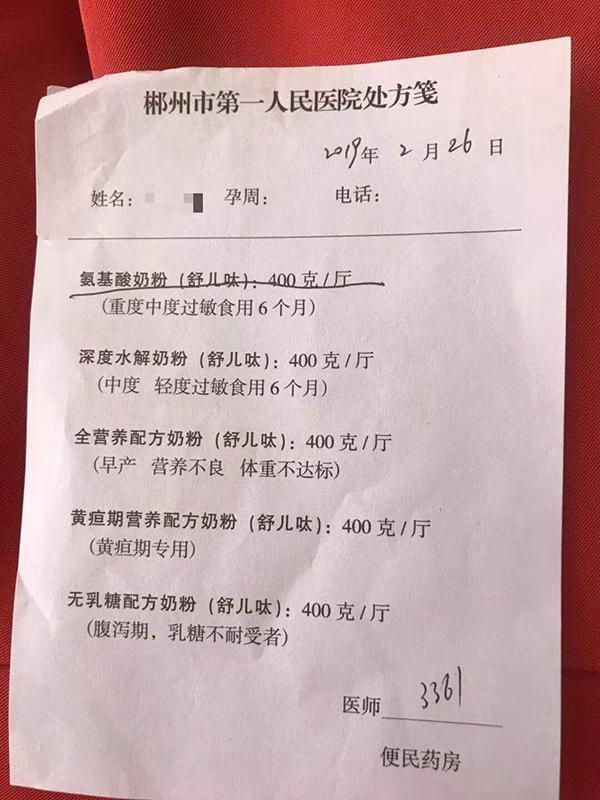 郴州市第一人民医院处方笺
2019年 2 月 26 日
姓名: 孕周: 电话:
氨基酸奶粉(舒儿呔): 400 克/厅
(重度中度过敏食用6个月)
深度水解奶粉(舒儿呔): 400 克/厅
(中度 轻度过敏食用6个月)
全营养配方奶粉(舒儿呔): 400 克/厅
(早产 营养不良 体重不达标)
黄疸期营养配方奶粉(舒儿呔): 400 克/厅
(黄疸期专用)
无乳糖配方奶粉(舒儿呔): 400 克/厅
(腹泻期,乳糖不耐受者)
医师 3361
便民药房